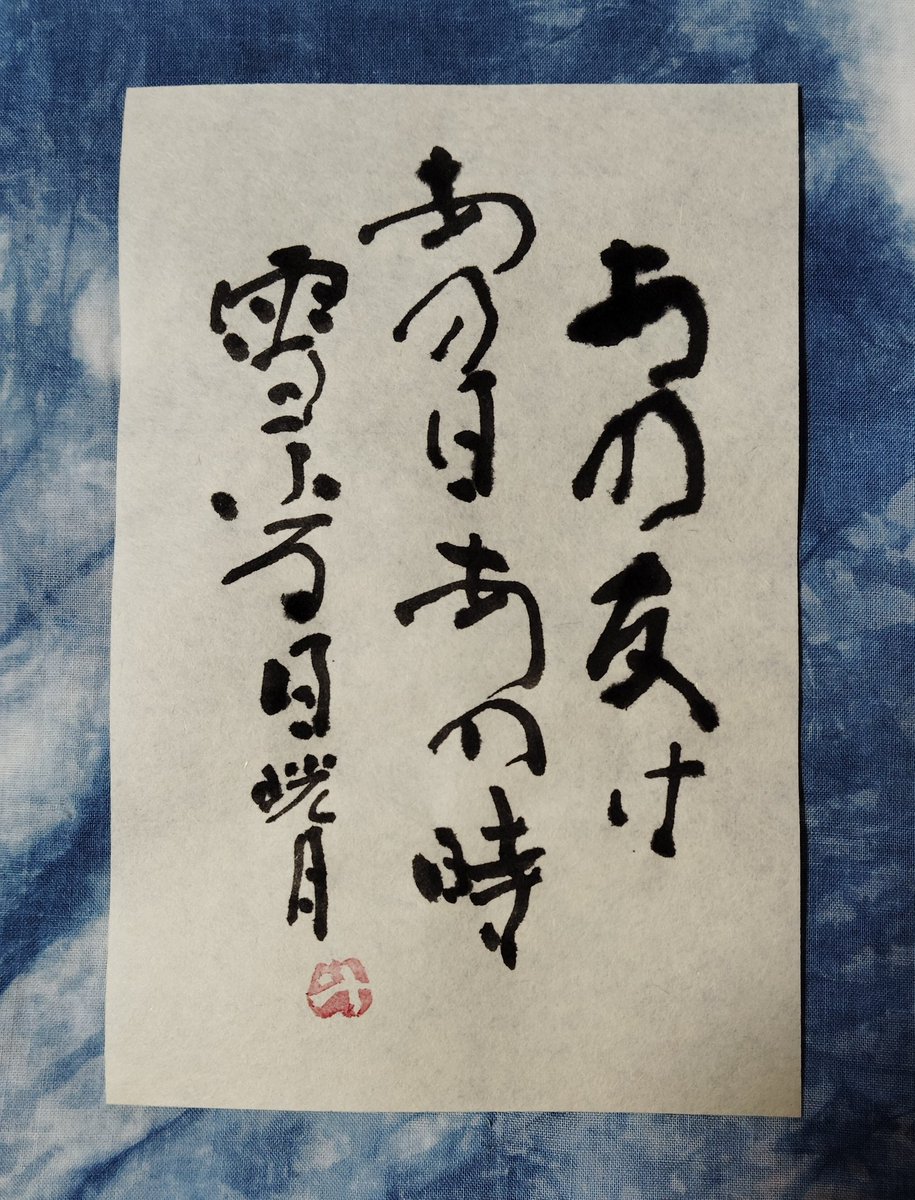 あの友は
あの日あの時
雪ふる日 晄月